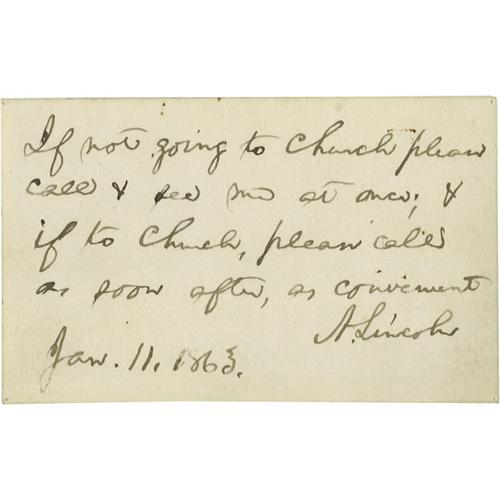 If not going to Church please
call & see me at once; &
if to Church, please call
as soon after, as convenient
A. Lincoln
Jan. 11. 1863.